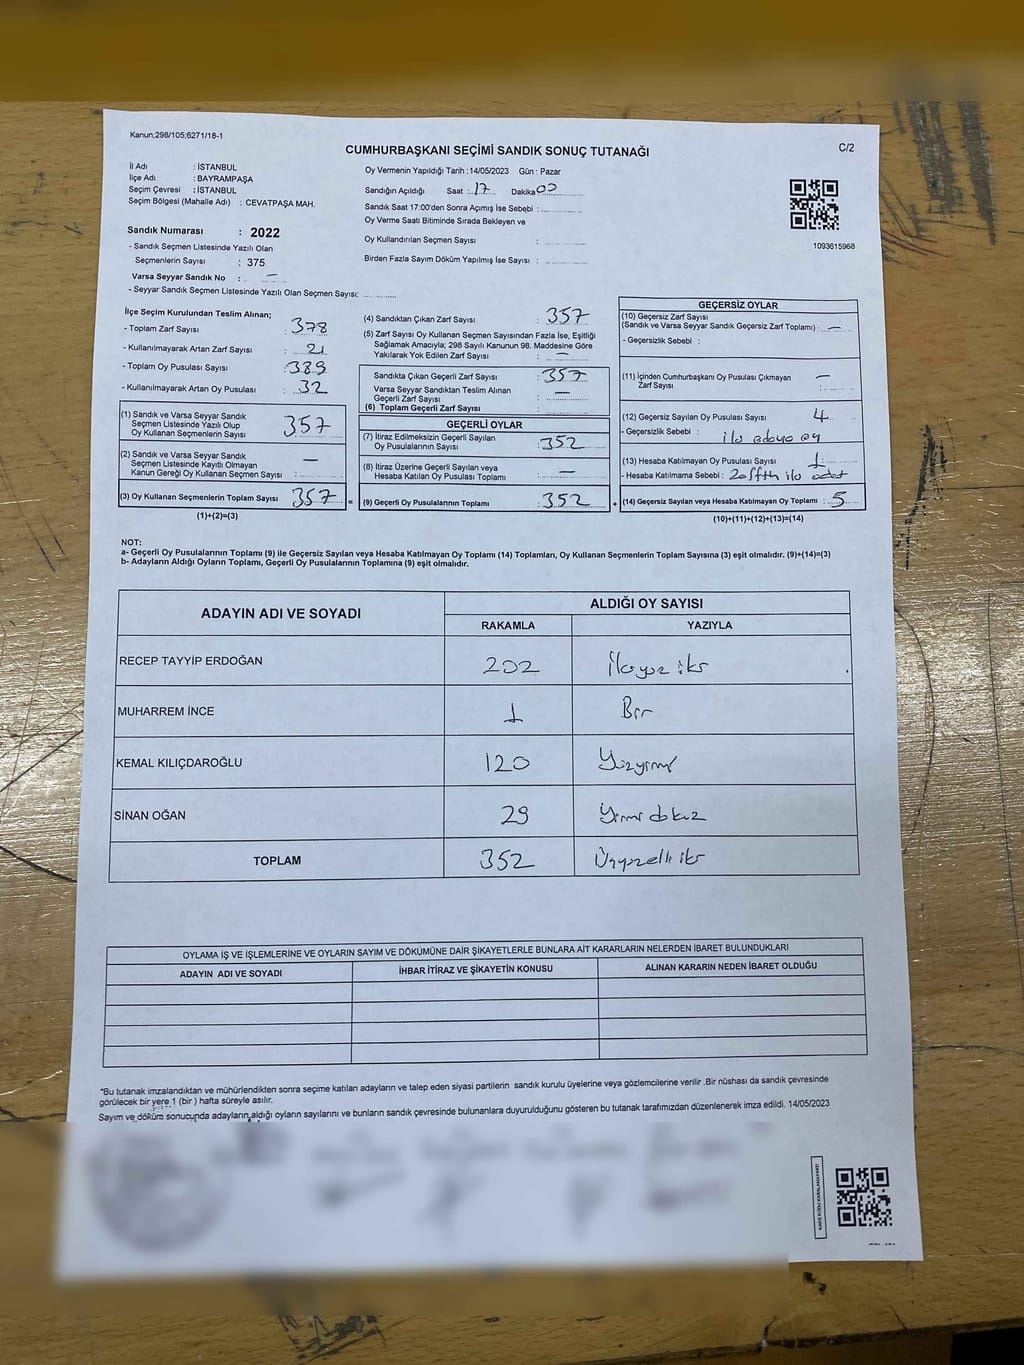 Kanun;298/105;6271/18-1
CUMHURBAŞKANI SEÇİMİ SANDIK SONUÇ TUTANAĞI
C/2
İl Adı : İSTANBUL
İlçe Adı : BAYRAMPAŞA
Seçim Çevresi : İSTANBUL
Seçim Bölgesi (Mahalle Adı) : CEVATPAŞA MAH.
Oy Vermenin Yapıldığı Tarih :14/05/2023 Gün : Pazar
Sandığın Açıldığı Saat : 17 Dakika 00
Sandık Saat 17:00'den Sonra Açımış İse Sebebi :
Oy Verme Saati Bitiminde Sırada Bekleyen ve
Oy Kullandırılan Seçmen Sayısı :
Birden Fazla Sayım Döküm Yapılmış İse Sayısı :
1093615968
Sandık Numarası : 2022
- Sandık Seçmen Listesinde Yazılı Olan
Seçmenlerin Sayısı : 375
Varsa Seyyar Sandık No : -
- Seyyar Sandık Seçmen Listesinde Yazılı Olan Seçmen Sayısı:
İlçe Seçim Kurulundan Teslim Alınan;
- Toplam Zarf Sayısı : 378
- Kullanılmayarak Artan Zarf Sayısı : 21
- Toplam Oy Pusulası Sayısı : 389
- Kullanılmayarak Artan Oy Pusulası : 32
(1) Sandık ve Varsa Seyyar Sandık
Seçmen Listesinde Yazılı Olup
Oy Kullanan Seçmenlerin Sayısı : 357
(2) Sandık ve Varsa Seyyar Sandık
Seçmen Listesinde Kayıtlı Olmayan
Kanun Gereği Oy Kullanan Seçmen Sayısı : -
(3) Oy Kullanan Seçmenlerin Toplam Sayısı : 357
(1)+(2)=(3)
=
(4) Sandıktan Çıkan Zarf Sayısı : 357
(5) Zarf Sayısı Oy Kullanan Seçmen Sayısından Fazla İse, Eşitliği
Sağlamak Amacıyla; 298 Sayılı Kanunun 98. Maddesine Göre
Yakılarak Yok Edilen Zarf Sayısı : -
Sandıkta Çıkan Geçerli Zarf Sayısı : 357
Varsa Seyyar Sandıktan Teslim Alınan
Geçerli Zarf Sayısı : -
(6) Toplam Geçerli Zarf Sayısı :
GEÇERLİ OYLAR
(7) İtiraz Edilmeksizin Geçerli Sayılan
Oy Pusulalarının Sayısı : 352
(8) İtiraz Üzerine Geçerli Sayılan veya
Hesaba Katılan Oy Pusulası Toplamı : -
(9) Geçerli Oy Pusulalarının Toplamı : 352
+
GEÇERSİZ OYLAR
(10) Geçersiz Zarf Sayısı
(Sandık ve Varsa Seyyar Sandık Geçersiz Zarf Toplamı) : -
- Geçersizlik Sebebi :
(11) İçinden Cumhurbaşkanı Oy Pusulası Çıkmayan
Zarf Sayısı : -
(12) Geçersiz Sayılan Oy Pusulası Sayısı : 4
- Geçersizlik Sebebi : iki adaya oy
(13) Hesaba Katılmayan Oy Pusulası Sayısı : 1
- Hesaba Katılmama Sebebi : iki adet
(14) Geçersiz Sayılan veya Hesaba Katılmayan Oy Toplamı : 5
(10)+(11)+(12)+(13)=(14)
NOT:
a- Geçerli Oy Pusulalarının Toplamı (9) ile Geçersiz Sayılan veya Hesaba Katılmayan Oy Toplamı (14) Toplamları, Oy Kullanan Seçmenlerin Toplam Sayısına (3) eşit olmalıdır. (9)+(14)=(3)
b- Adayların Aldığı Oyların Toplamı, Geçerli Oy Pusulalarının Toplamına (9) eşit olmalıdır.
ADAYIN ADI VE SOYADI
ALDIĞI OY SAYISI
RAKAMLA YAZIYLA
RECEP TAYYİP ERDOĞAN 202 İkiyüz iki
MUHARREM İNCE 1 Bir
KEMAL KILIÇDAROĞLU 120 Yüzyirmi
SİNAN OĞAN 29 Yirmi dokuz
TOPLAM 352 Üçyüzelli iki
OYLAMA İŞ VE İŞLEMLERİNE VE OYLARIN SAYIM VE DÖKÜMÜNE DAİR ŞİKAYETLERLE BUNLARA AİT KARARLARIN NELERDEN İBARET BULUNDUKLARI
ADAYIN ADI VE SOYADI İHBAR İTİRAZ VE ŞİKAYETİN KONUSU ALINAN KARARIN NEDEN İBARET OLDUĞU
*Bu tutanak imzalandıktan ve mühürlendikten sonra seçime katılan adayların ve talep eden siyasi partilerin sandık kurulu üyelerine veya gözlemcilerine verilir .Bir nüshası da sandık çevresinde
görülecek bir yere 1 (bir ) hafta süreyle asılır.
Sayım ve döküm sonucunda adayların aldığı oyların sayılarını ve bunların sandık çevresinde bulunanlara duyurulduğunu gösteren bu tutanak tarafımızdan düzenlenerek imza edildi. 14/05/2023